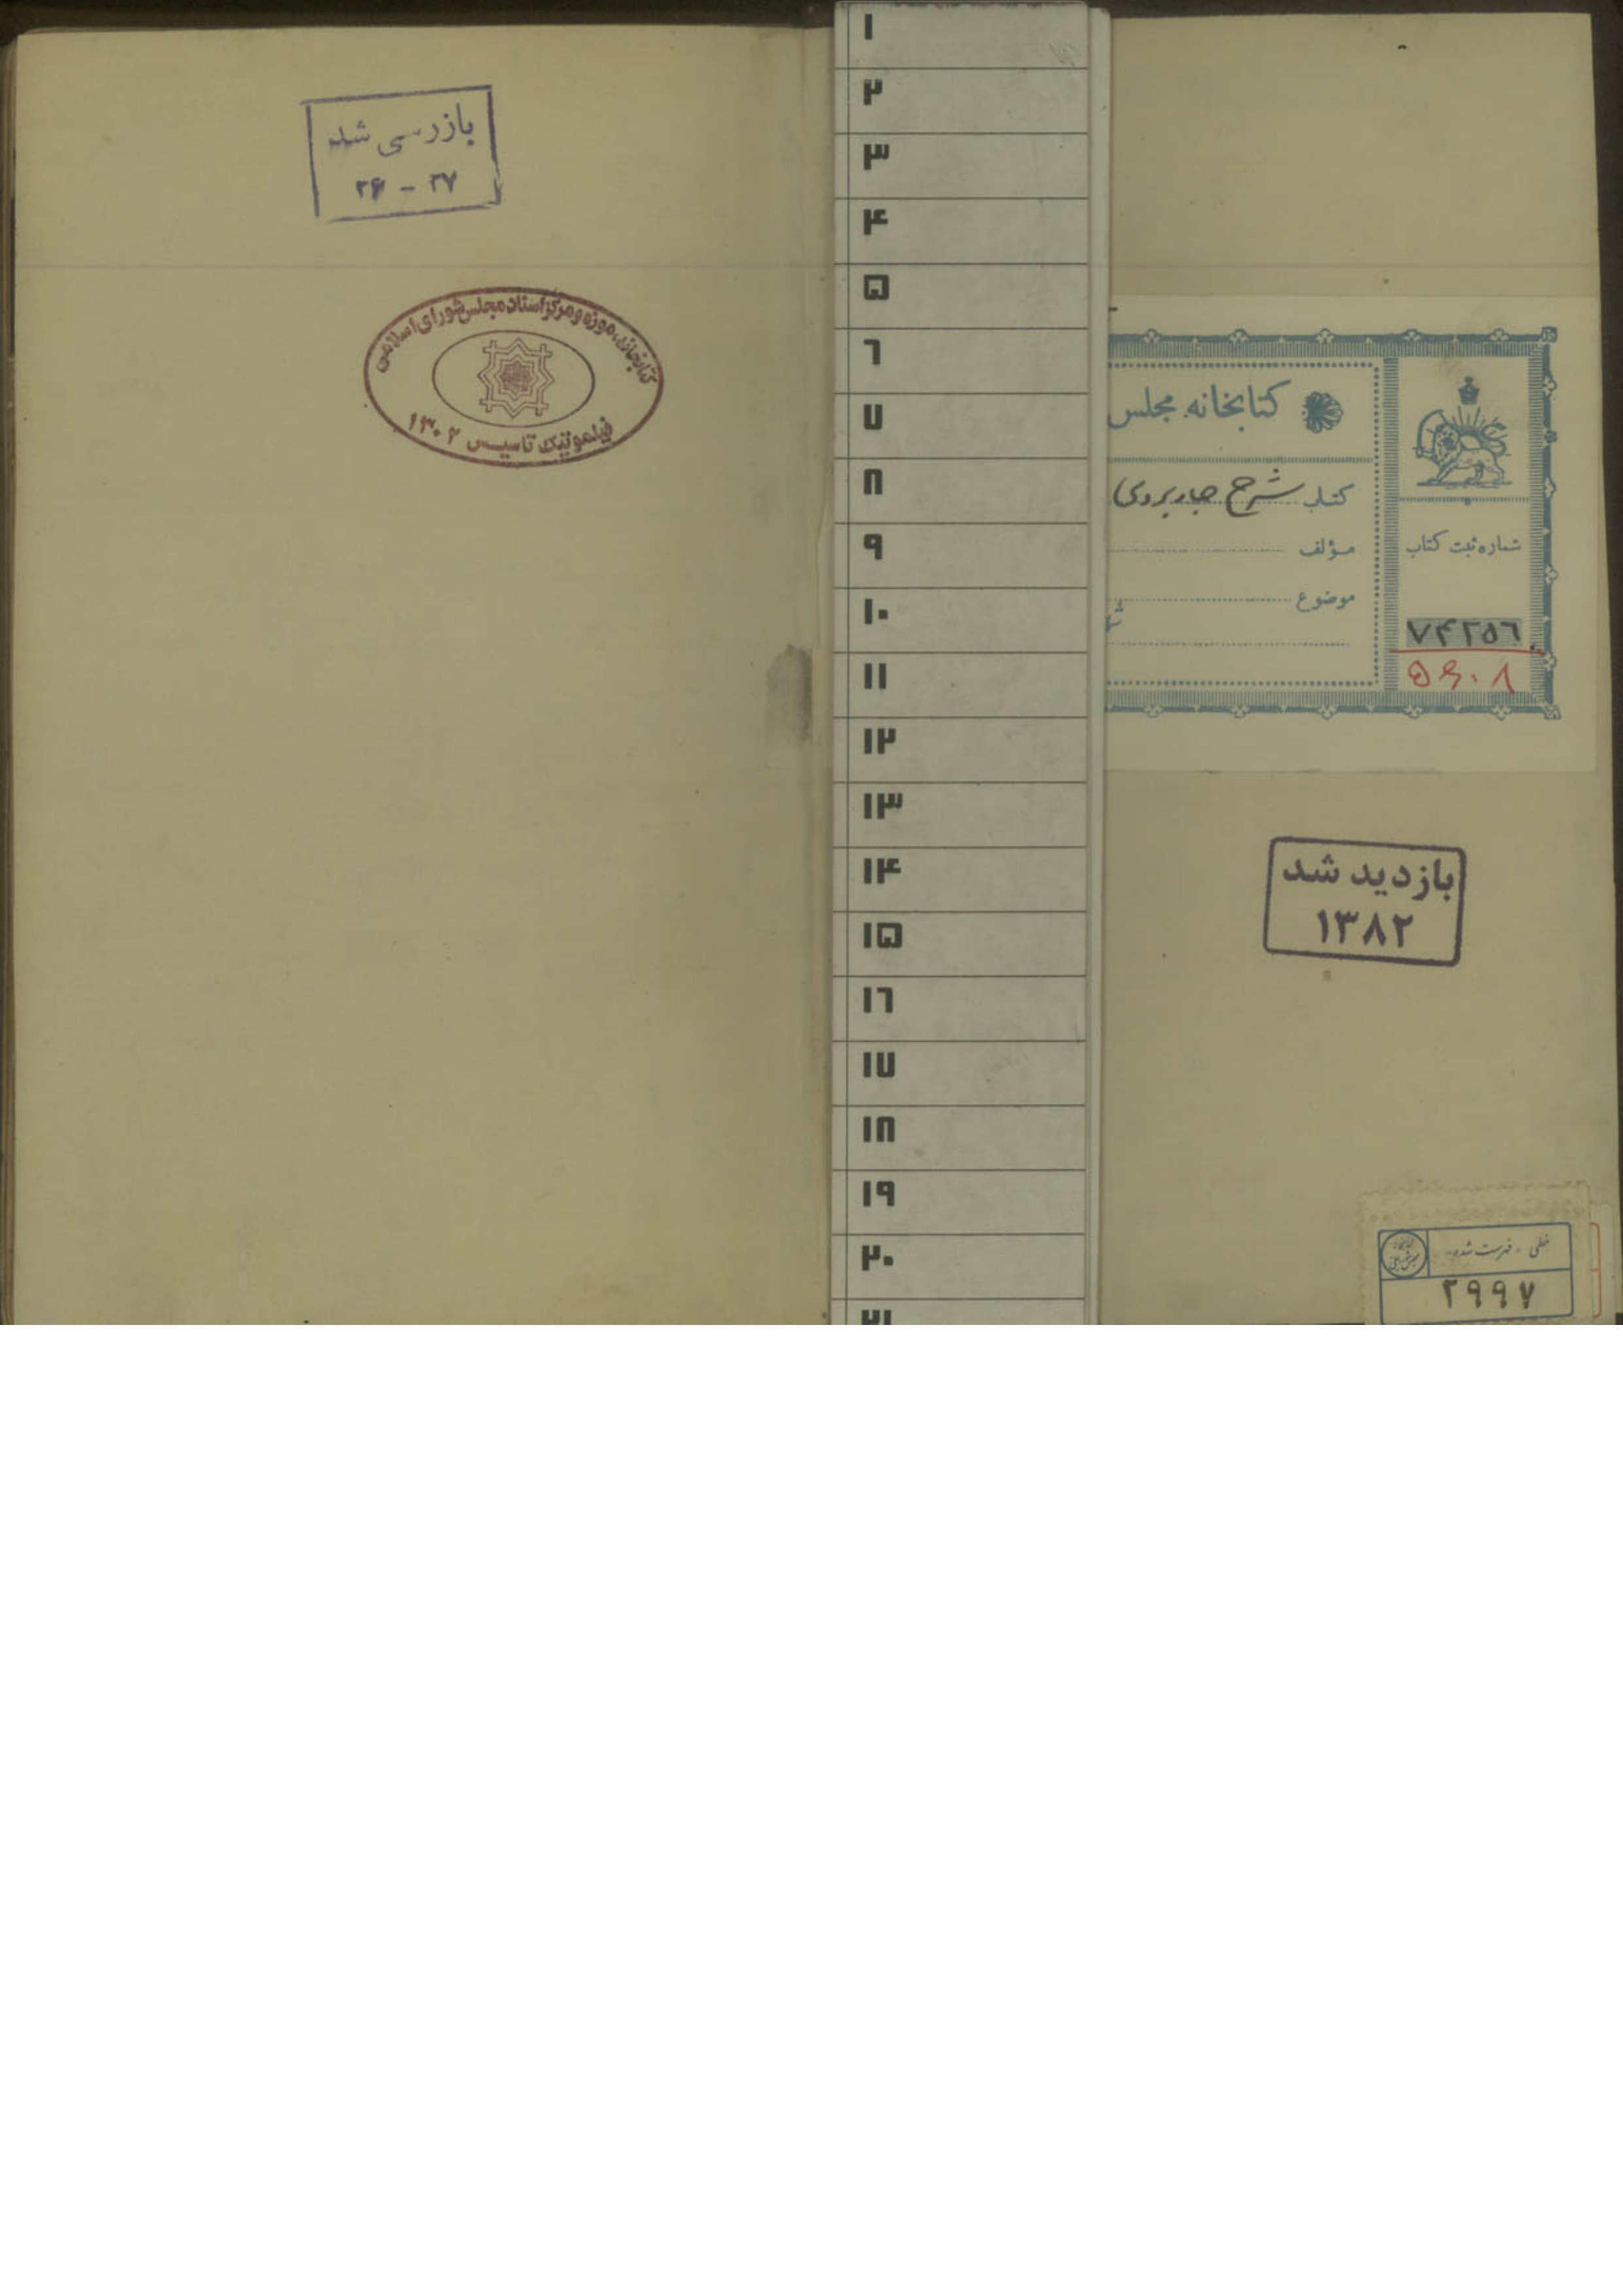 بازرسی شد
۳۶ - ۳۷
کتابخانه، موزه و مرکز اسناد مجلس شورای اسلامی
تاسیس ۱۳۰۲
۱
۲
۳
۴
۵
۶
۷
۸
۹
۱۰
۱۱
۱۲
۱۳
۱۴
۱۵
۱۶
۱۷
۱۸
۱۹
۲۰
۲۱
کتابخانه مجلس
کتاب شرح جاربردی
مؤلف
موضوع
شماره ثبت کتاب
۷۴۲۵۶
۵۶۰۸
بازدید شد
۱۳۸۲
خطی - فهرست شده -
۲۹۹۷